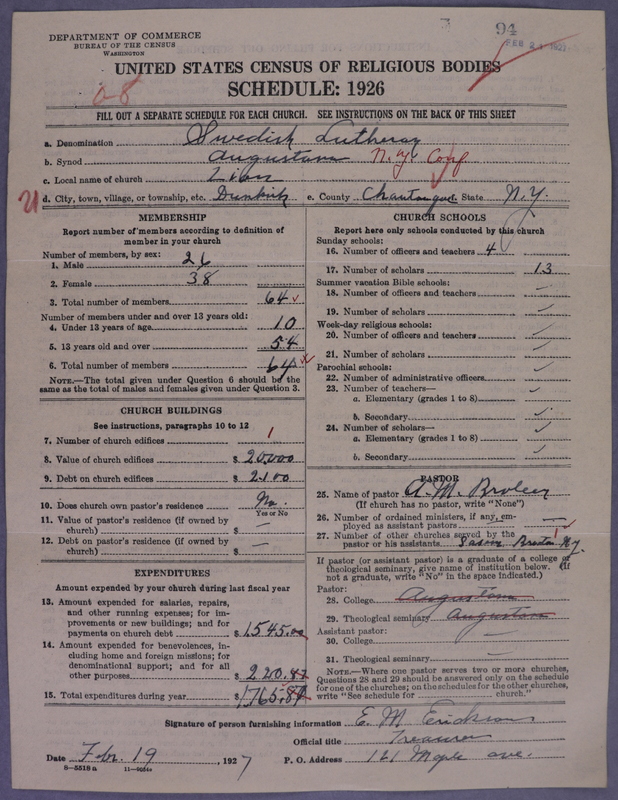 DEPARTMENT OF COMMERCE
BUREAU OF THE CENSUS
WASHINGTON
94
FEB 21 1927
UNITED STATES CENSUS OF RELIGIOUS BODIES
SCHEDULE: 1926
a-8
FILL OUT A SEPARATE SCHEDULE FOR EACH CHURCH. SEE INSTRUCTIONS ON THE BACK OF THIS SHEET
a. Denomination Swedish Lutheran
b. Synod Augustana N.Y. Conf
c. Local name of church Zion
d. City, town, village, or township, etc. Dunkirk e. County Chautauqua State N.Y.
MEMBERSHIP
Report number of members according to definition of member in your church
Number of members, by sex:
1. Male 26
2. Female 38
3. Total number of members 64
Number of members under and over 13 years old:
4. Under 13 years of age 10
5. 13 years old and over 54
6. Total number of members 64
NOTE.—The total given under Question 6 should be the same as the total of males and females given under Question 3.
CHURCH BUILDINGS
See instructions, paragraphs 10 to 12
7. Number of church edifices 1
8. Value of church edifices $ 20,000
9. Debt on church edifices $ 2100
10. Does church own pastor's residence No.
Yes or No
11. Value of pastor's residence (if owned by church) $ —
12. Debt on pastor's residence (if owned by church) $ —
EXPENDITURES
Amount expended by your church during last fiscal year
13. Amount expended for salaries, repairs, and other running expenses; for improvements or new buildings; and for payments on church debt $ 1545.00
14. Amount expended for benevolences, including home and foreign missions; for denominational support; and for all other purposes $ 220.87
15. Total expenditures during year $ 1765.87
CHURCH SCHOOLS
Report here only schools conducted by this church
Sunday schools:
16. Number of officers and teachers 4
17. Number of scholars 13
Summer vacation Bible schools:
18. Number of officers and teachers
19. Number of scholars
Week-day religious schools:
20. Number of officers and teachers
21. Number of scholars
Parochial schools:
22. Number of administrative officers
23. Number of teachers—
a. Elementary (grades 1 to 8)
b. Secondary
24. Number of scholars—
a. Elementary (grades 1 to 8)
b. Secondary
PASTOR
25. Name of pastor A. M.
(If church has no pastor, write "None")
26. Number of ordained ministers, if any, employed as assistant pastors —
27. Number of other churches served by the pastor or his assistants 1 N.Y.
If pastor (or assistant pastor) is a graduate of a college or theological seminary, give name of institution below. (If not a graduate, write "No" in the space indicated.)
Pastor:
28. College Augustana
29. Theological seminary Augustana
Assistant pastor:
30. College —
31. Theological seminary —
NOTE.—Where one pastor serves two or more churches, Questions 28 and 29 should be answered only on the schedule for one of the churches; on the schedules for the other churches, write "See schedule for church."
Signature of person furnishing information E. M. Erickson
Official title Treasurer
Date Feb. 19, 1927 P. O. Address 161 Maple ave.
8—5518a 11—9034a